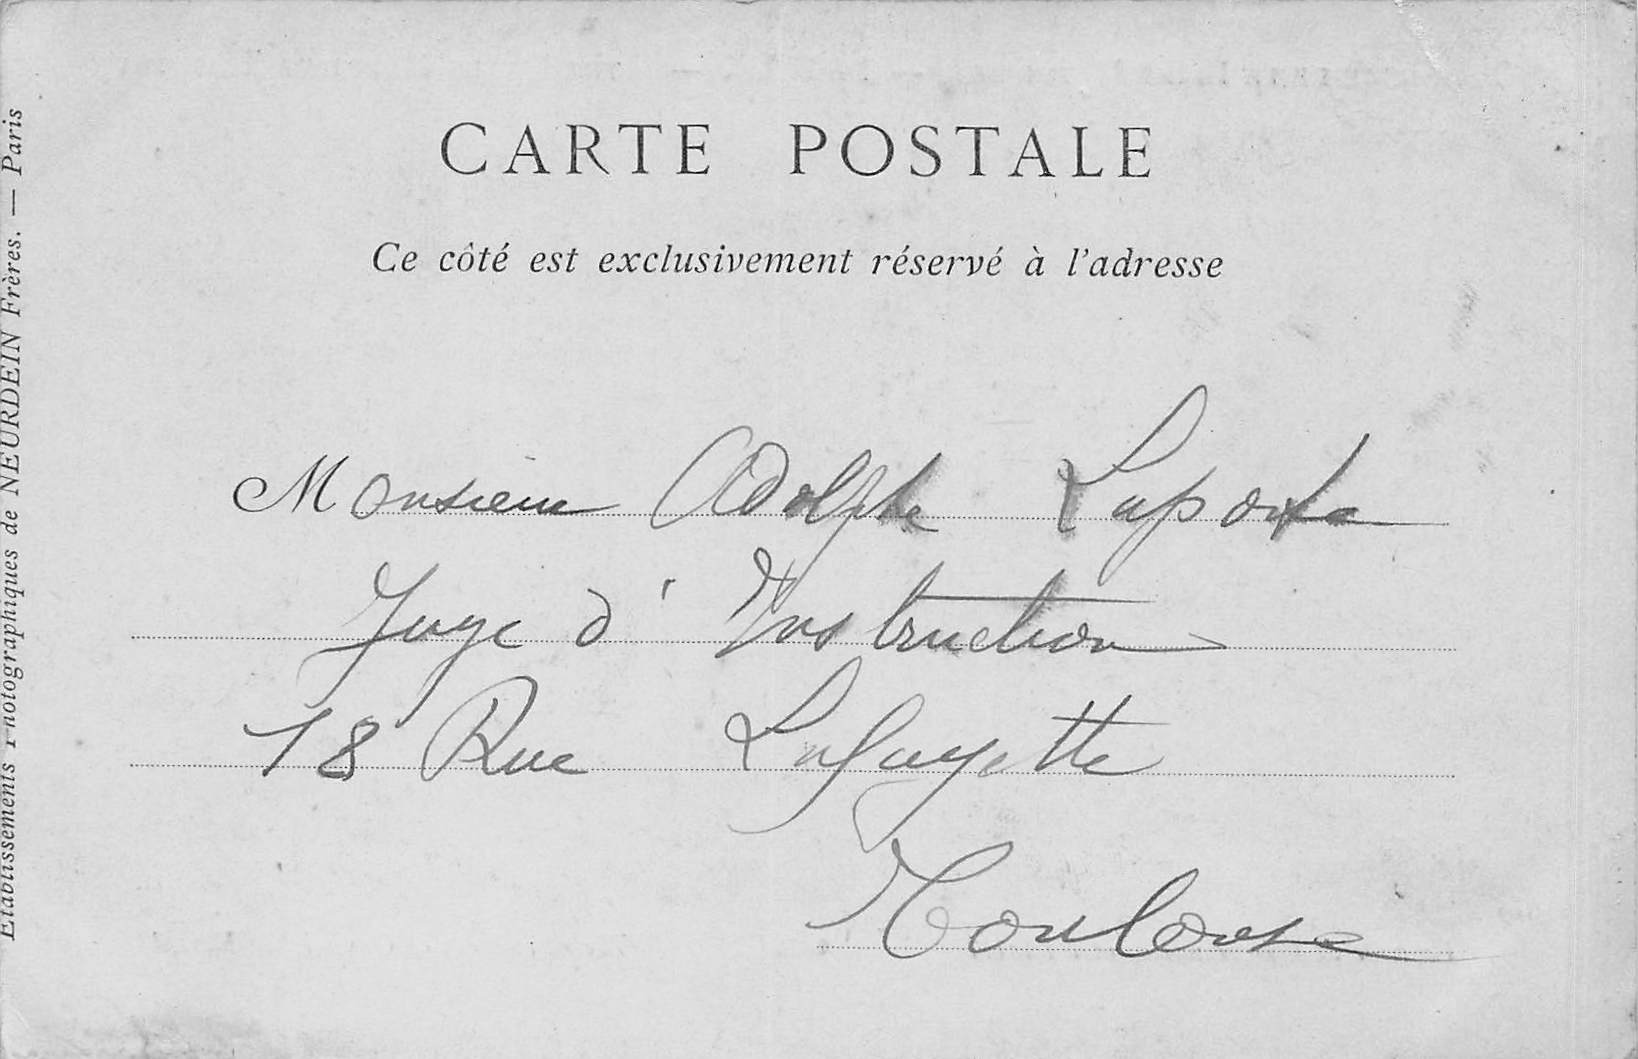 CARTE POSTALE
Ce côté est exclusivement réservé à l'adresse
Monsieur Adolphe Laporte
Juge d'Instruction
18 Rue Lafayette
Toulouse
Etablissements Photographiques de NEURDEIN Frères. — Paris